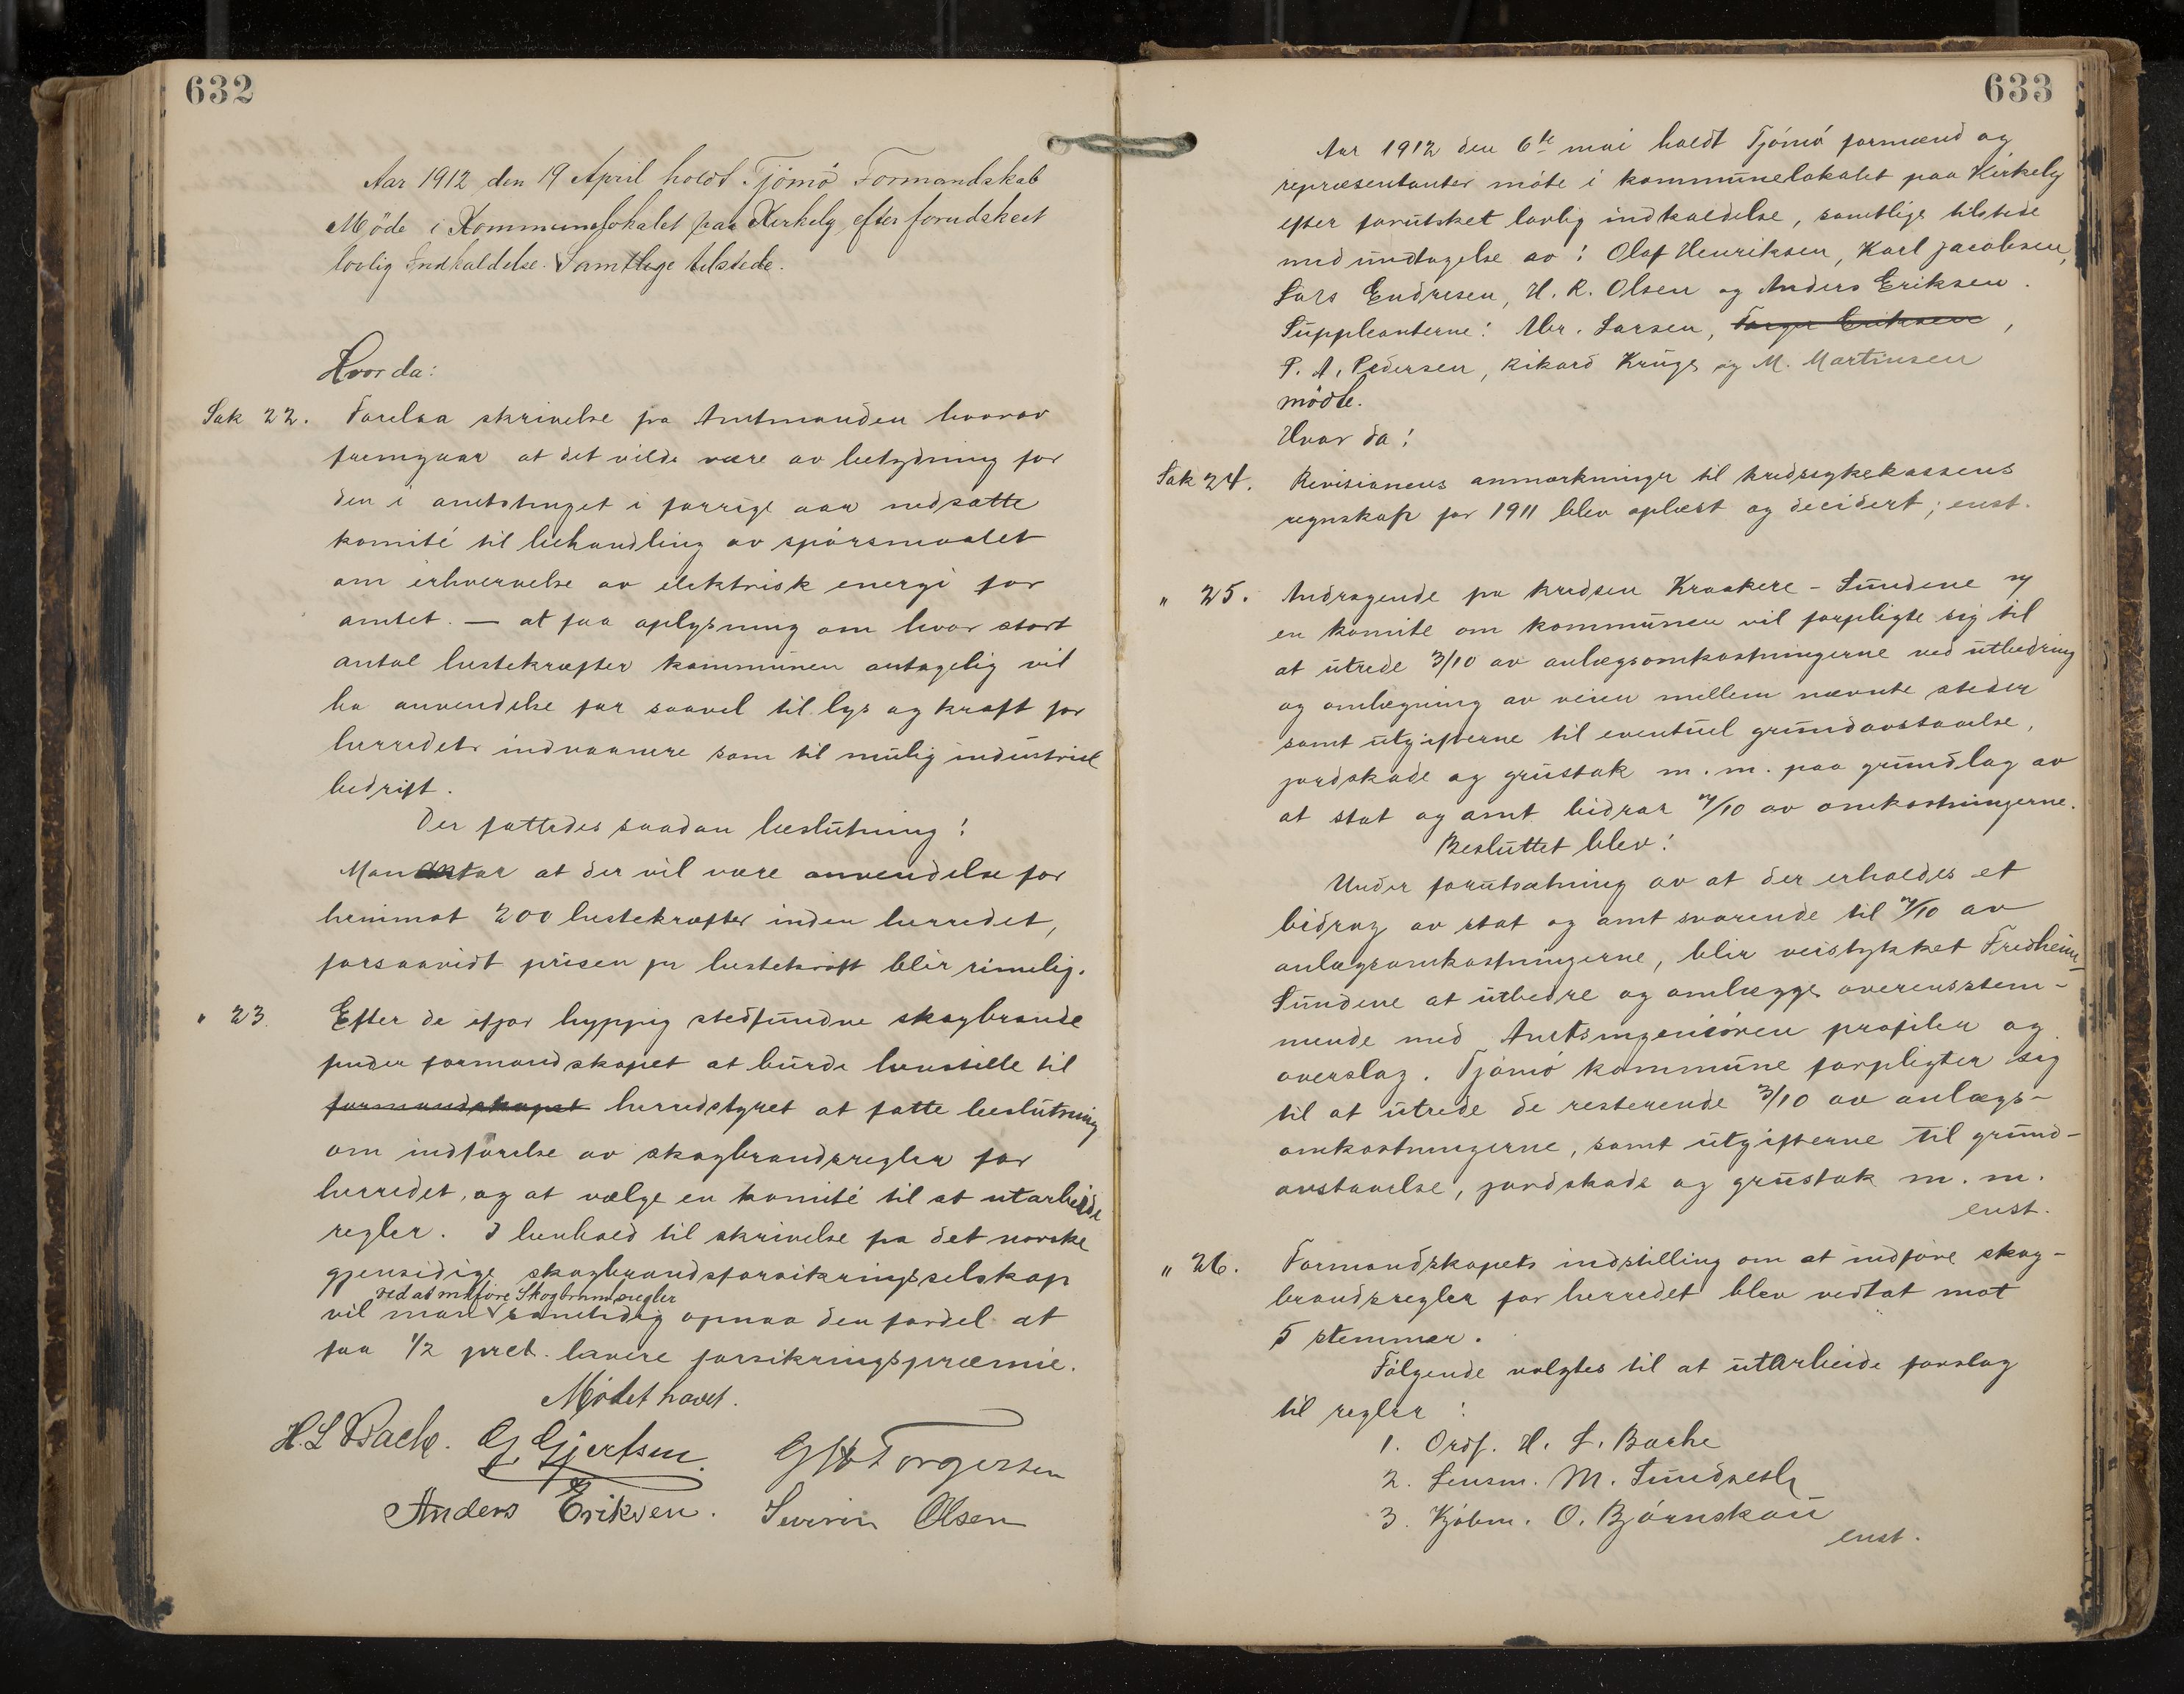 632
Aar 1912 den 19 April holdt Tjömö Formandskab
Möde i Kommunelokalet paa Kirkely efter forudskeet
lovlig Indkaldelse. Samtlige tilstede.
Hvor da:
Sak 22. Forelaa skrivelse fra Amtmanden hvorav
fremgaar at det vilde være av betydning for
den i amtstinget i forrige aar nedsatte
komité til behandling av spörsmaalet
om erhvervelse av elektrisk energi for
amtet. — at faa oplysning om hvor stort
antal hestekræfter kommunen antagelig vil
ha anvendelse for saavel til lys og kraft for
herredets indvaanere som til mulig industriel
bedrift.
Der fattedes saadan beslutning:
Man antar at der vil være anvendelse for
henimot 200 hestekræfter inden herredet,
forsaavidt prisen pr hestekraft blir rimelig.
" 23. Efter de ifjor hyppig stedfundne skogbrande
finder formandskapet at burde henstille til
formandskapet herredstyret at fatte beslutning
om indförelse av skogbrandsregler for
herredet, og at vælge en komité til at utarbeide
regler. I henhold til skrivelse fra det norske
gjensidige skogbrandsforsikringsselskap
ved at indföre Skogbrandsregler
vil man samtidig opnaa den fordel at
faa 1/2 prct. lavere forsikringspræmie.
Mödet hævet.
H. L Bache. G. Gjertsen. G H Torgersen
Anders Eriksen. Severin Olsen
633
Aar 1912 den 6te mai holdt Tjömö formænd og
repræsentanter möte i kommunelokalet paa Kirkely
efter forutsket lovlig indkaldelse, samtlige tilstede
med undtagelse av: Olaf Henriksen, Karl Jacobsen,
Lars Endresen, H. R. Olsen og Anders Eriksen.
Suppleanterne: Abr. Larsen, Torger Eriksen,
P. A. Pedersen, Rikard Krüge og M. Martinsen
mödte.
Hvor da:
Sak 24. Revisionens anmærkninger til kredssykekassens
regnskap for 1911 blev oplæst og decidert; enst.
" 25. Andragende fra kredsen Kraakere - Sundene ved
en komite om kommunen vil forpligte sig til
at utrede 3/10 av anlægsomkostningerne ved utbedring
og omlægning av veien mellem nævnte steder
samt utgifterne til eventuel grundavstaaelse,
jordskade og grustak m. m. paa grundlag av
at stat og amt bidrar 7/10 av omkostningerne.
Besluttet blev:
Under forutsætning av at der erholdes et
bidrag av stat og amt svarende til 7/10 av
anlægsomkostningerne, blir veistykket Fredheim-
Sundene at utbedre og omlægge overensstem-
mende med Amtsingeniören profiler og
overslag. Tjömö kommune forpligter sig
til at utrede de resterende 3/10 av anlægs-
omkostningerne, samt utgifterne til grund-
avstaaelse, jordskade og grustak m. m.
enst.
" 26. Formandskapets indstilling om at indföre skog-
brandsregler for herredet blev vedtat mot
5 stemmer.
Fölgende valgtes til at utarbeide forslag
til regler :
1. Ordf. H. L. Bache
2. Lensm. M. Sundseth
3. Kjöbm. O. Björnskau
enst.